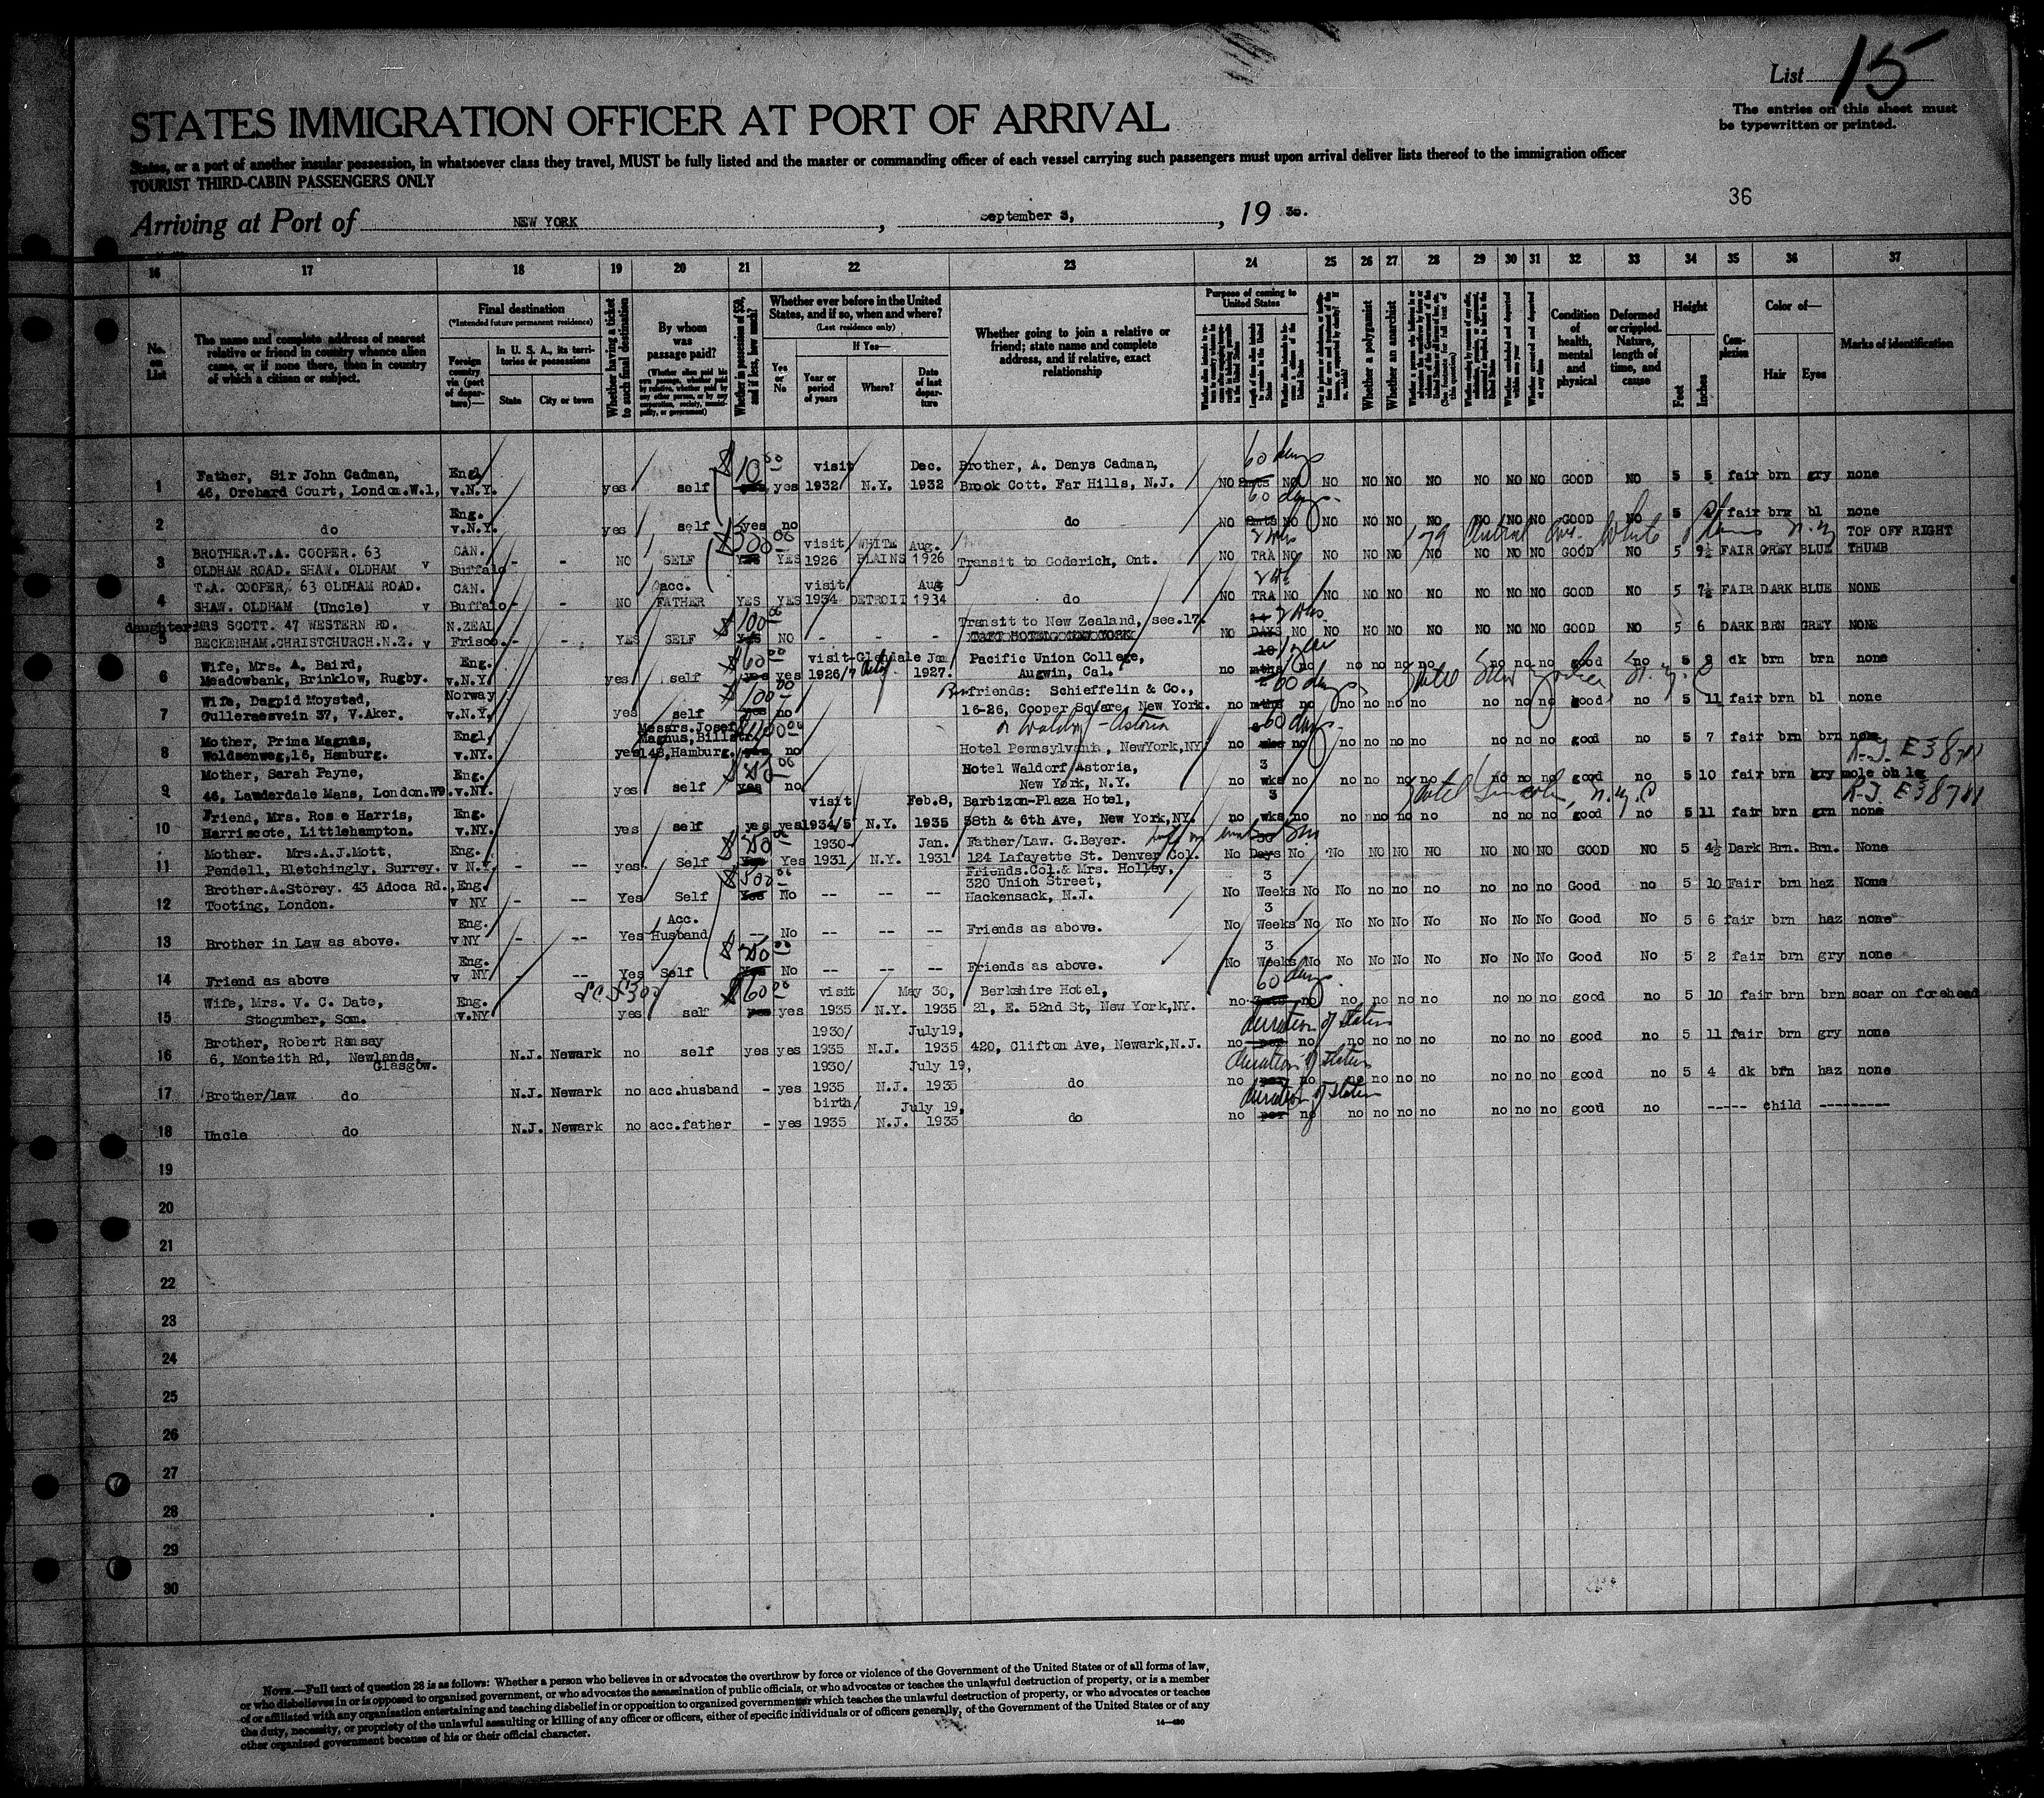 List 15
The entries on this sheet must
be typewritten or printed.
STATES IMMIGRATION OFFICER AT PORT OF ARRIVAL
States, or a port of another insular possession, in whatsoever class they travel, MUST be fully listed and the master or commanding officer of each vessel carrying such passengers must upon arrival deliver lists thereof to the immigration officer
TOURIST THIRD-CABIN PASSENGERS ONLY
36
Arriving at Port of NEW YORK, September 3, 19
16 17 18 19 20 21 22 23 24 25 26 27 28 29 30 31 32 33 34 35 36 37
No. on List
The name and complete address of nearest
relative or friend in country whence alien
came, or if none there, then in country
of which a citizen or subject.
Final destination
(*Intended future permanent residence)
Foreign country via (port of departure)—
In U. S. A., its territories or possessions
State
City or town
Whether having a ticket to such final destination
By whom was passage paid?
Whether in possession of $50, and if less, how much?
Whether ever before in the United States, and if so, when and where?
(Last residence only)
Yes or No
If Yes—
Year or period of years
Where?
Date of last departure
Whether going to join a relative or
friend; state name and complete
address, and if relative, exact
relationship
Purpose of coming to United States
Whether a polygamist
Whether an anarchist
Condition of health, mental and physical
Deformed or crippled. Nature, length of time, and cause
Height
Feet
Inches
Complexion
Color of—
Hair
Eyes
Marks of identification
Father, Sir John Cadman, Engl $10 00 visit Dec. Brother, A. Denys Cadman, 60 days
1 46, Orchard Court, London.W.1, v.N.Y. yes self yes 1932 N.Y. 1932 Brook Cott. Far Hills, N.J. NO NO NO NO NO NO NO NO NO GOOD NO 5 5 fair brn gry none
Eng. 60 days
2 do v.N.Y. yes self yes no do NO NO NO NO NO NO NO NO NO GOOD NO 5 fair brn bl none
BROTHER.T.A. COOPER. 63 CAN. visit WHITE Aug. 179 Central Ave. White Plains N.Y. TOP OFF RIGHT
3 OLDHAM ROAD. SHAW. OLDHAM v Buffalo - - NO SELF YES YES 1926 PLAINS 1926 Transit to Goderich, Ont. NO TRA NO NO NO NO NO NO NO NO GOOD NO 5 9½ FAIR GREY BLUE THUMB
T.A. COOPER, 63 OLDHAM ROAD. CAN. acc. visit Aug
4 SHAW. OLDHAM (Uncle) v Buffalo - - NO FATHER YES YES 1934 DETROIT 1934 do NO TRA NO NO NO NO NO NO NO NO GOOD NO 5 7½ FAIR DARK BLUE NONE
daughter: MRS SCOTT. 47 WESTERN RD. N.ZEAL $100 00 Transit to New Zealand, see.17.
5 BECKENHAM.CHRISTCHURCH.N.Z. v Frisco. - - YES SELF YES NO - - - NO DAYS NO NO NO NO NO NO NO NO GOOD NO 5 6 DARK BRN GREY NONE
Wife, Mrs. A. Baird, Eng. $60 00 visit-Glendale Jan Pacific Union College, 1 year
6 Meadowbank, Brinklow, Rugby. v.N.Y. yes self yes yes 1926/7 1927. Augwin, Cal. no mths no no no no no no no no good no 5 dk brn brn none
Wife, Dagpid Moystad, Norway $100 00 friends: Schieffelin & Co., 60 days
7 Gulleraasvein 37, V.Aker. v.N.Y. yes self yes no 16-26, Cooper Square, New York. no mths no no no no no no no no good no 5 11 fair brn bl none
or Waldorf - Astoria
Mother, Prima Magnus, Engl, Messrs. Josef Magnus, 60 days.
8 Woldsenweg,18, Hamburg. v.NY. yes 148,Hamburg. no Hotel Pennsylvania, NewYork,NY. no no no no no no no no no good no 5 7 fair brn brn none
Mother, Sarah Payne, Eng. Hotel Waldorf Astoria, 3
9 46, Lauderdale Mans, London.W9. v.NY. yes self yes no New York, N.Y. no wks no no no no no no no no good no 5 10 fair brn gry mole on leg
Friend, Mrs. Rose Harris, Eng. visit Feb.8, Barbizon-Plaza Hotel, 3 Hotel Lincoln, N.Y.C
10 Harriscote, Littlehampton. v.NY. yes self yes yes 1934/5 N.Y. 1935 58th & 6th Ave, New York,NY. no wks no no no no no no no no good no 5 11 fair brn grn none
Mother. Mrs.A.J.Mott, Eng. 1930- Jan. Father/Law. G.Beyer. 30
11 Pendell, Bletchingly, Surrey. v N.Y. - -- yes Self Yes Yes 1931 N.Y. 1931 124 Lafayette St. Denver Col. No Days No No NO NO NO NO NO NO GOOD NO 5 4½ Dark Brn. Brn. None
Friends.Col.& Mrs. Holley,
Brother.A.Storey. 43 Adoca Rd., Eng. $500 00 320 Union Street, 3
12 Tooting, London. v NY - -- Yes Self Yes No -- -- -- Hackensack, N.J. No Weeks No No no no no no no no Good no 5 10 Fair brn haz None
Eng. Acc. 3
13 Brother in Law as above. v NY - -- Yes Husband -- No -- -- -- Friends as above. No Weeks No No No No No No No No Good No 5 6 fair brn haz none
Eng. 3
14 Friend as above v NY - -- Yes Self Yes No -- -- -- Friends as above. No Weeks No No No No No No No No Good No 5 2 fair brn gry none
Wife, Mrs. V. C. Date, Eng. $60 00 visit May 30, Berkshire Hotel, 60 days
15 Stogumber, Som. v.NY yes self yes yes 1935 N.Y. 1935 21, E. 52nd St, New York,NY. no no no no no no no no no good no 5 10 fair brn brn scar on forehead
Brother, Robert Ramsay 1930/ July19, duration of status
16 6, Monteith Rd, Newlands, Glasgow. N.J. Newark no self yes yes 1935 N.J. 1935 420, Clifton Ave, Newark,N.J. no per no no no no no no no no good no 5 11 fair brn gry none
1930/ July 19, duration of status
17 Brother/law do N.J. Newark no acc.husband - yes 1935 N.J. 1935 do no per no no no no no no no no good no 5 4 dk brn haz none
birth/ July 19, duration of status
18 Uncle do N.J. Newark no acc.father - yes 1935 N.J. 1935 do no per no no no no no no no no good no ----- child ---------
19
20
21
22
23
24
25
26
27
28
29
30
NOTE.—Full text of question 28 is as follows: Whether a person who believes in or advocates the overthrow by force or violence of the Government of the United States or of all forms of law,
or who disbelieves in or is opposed to organized government, or who advocates the assassination of public officials, or who advocates or teaches the unlawful destruction of property, or is a member
of or affiliated with any organization entertaining and teaching disbelief in or opposition to organized government or which teaches the unlawful destruction of property, or who advocates or teaches
the duty, necessity, or propriety of the unlawful assaulting or killing of any officer or officers, either of specific individuals or of officers generally, of the Government of the United States or of any
other organized government because of his or their official character.
14—480